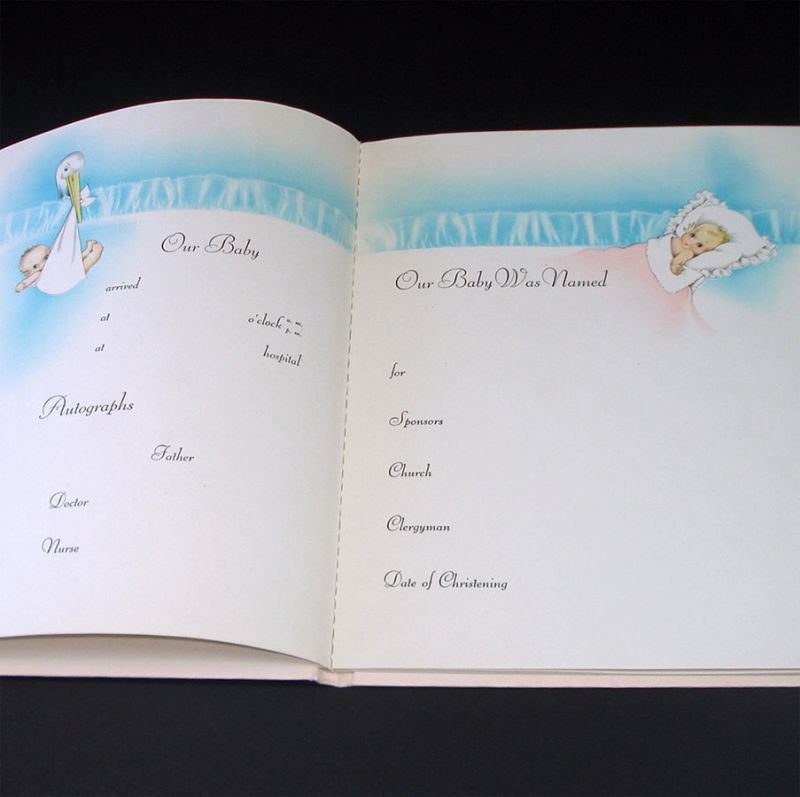 Our Baby
arrived
at o'clock a. m. p. m.
at hospital
Autographs
Father
Doctor
Nurse
Our Baby Was Named
for
Sponsors
Church
Clergyman
Date of Christening